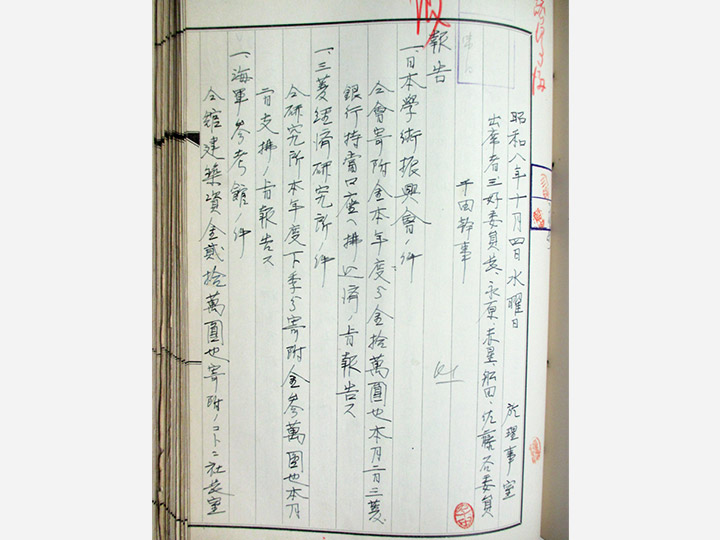 昭和八年十月四日水曜日 於理事室
出席者三好委員長、永原、赤星、船田、佐藤各委員
平田幹事
報告
一、日本學術振興會ノ件
仝會寄附金本年度分金拾萬圓也本月二日三菱
銀行特當口座ヘ拂込済ノ旨報告ス
一、三菱経済研究所ノ件
仝研究所本年度下季分寄附金参萬圓也本月
二日支拂ノ旨報告ス
一、海軍参考館ノ件
仝館建築資金貳拾萬圓也寄附ノコトニ社長室